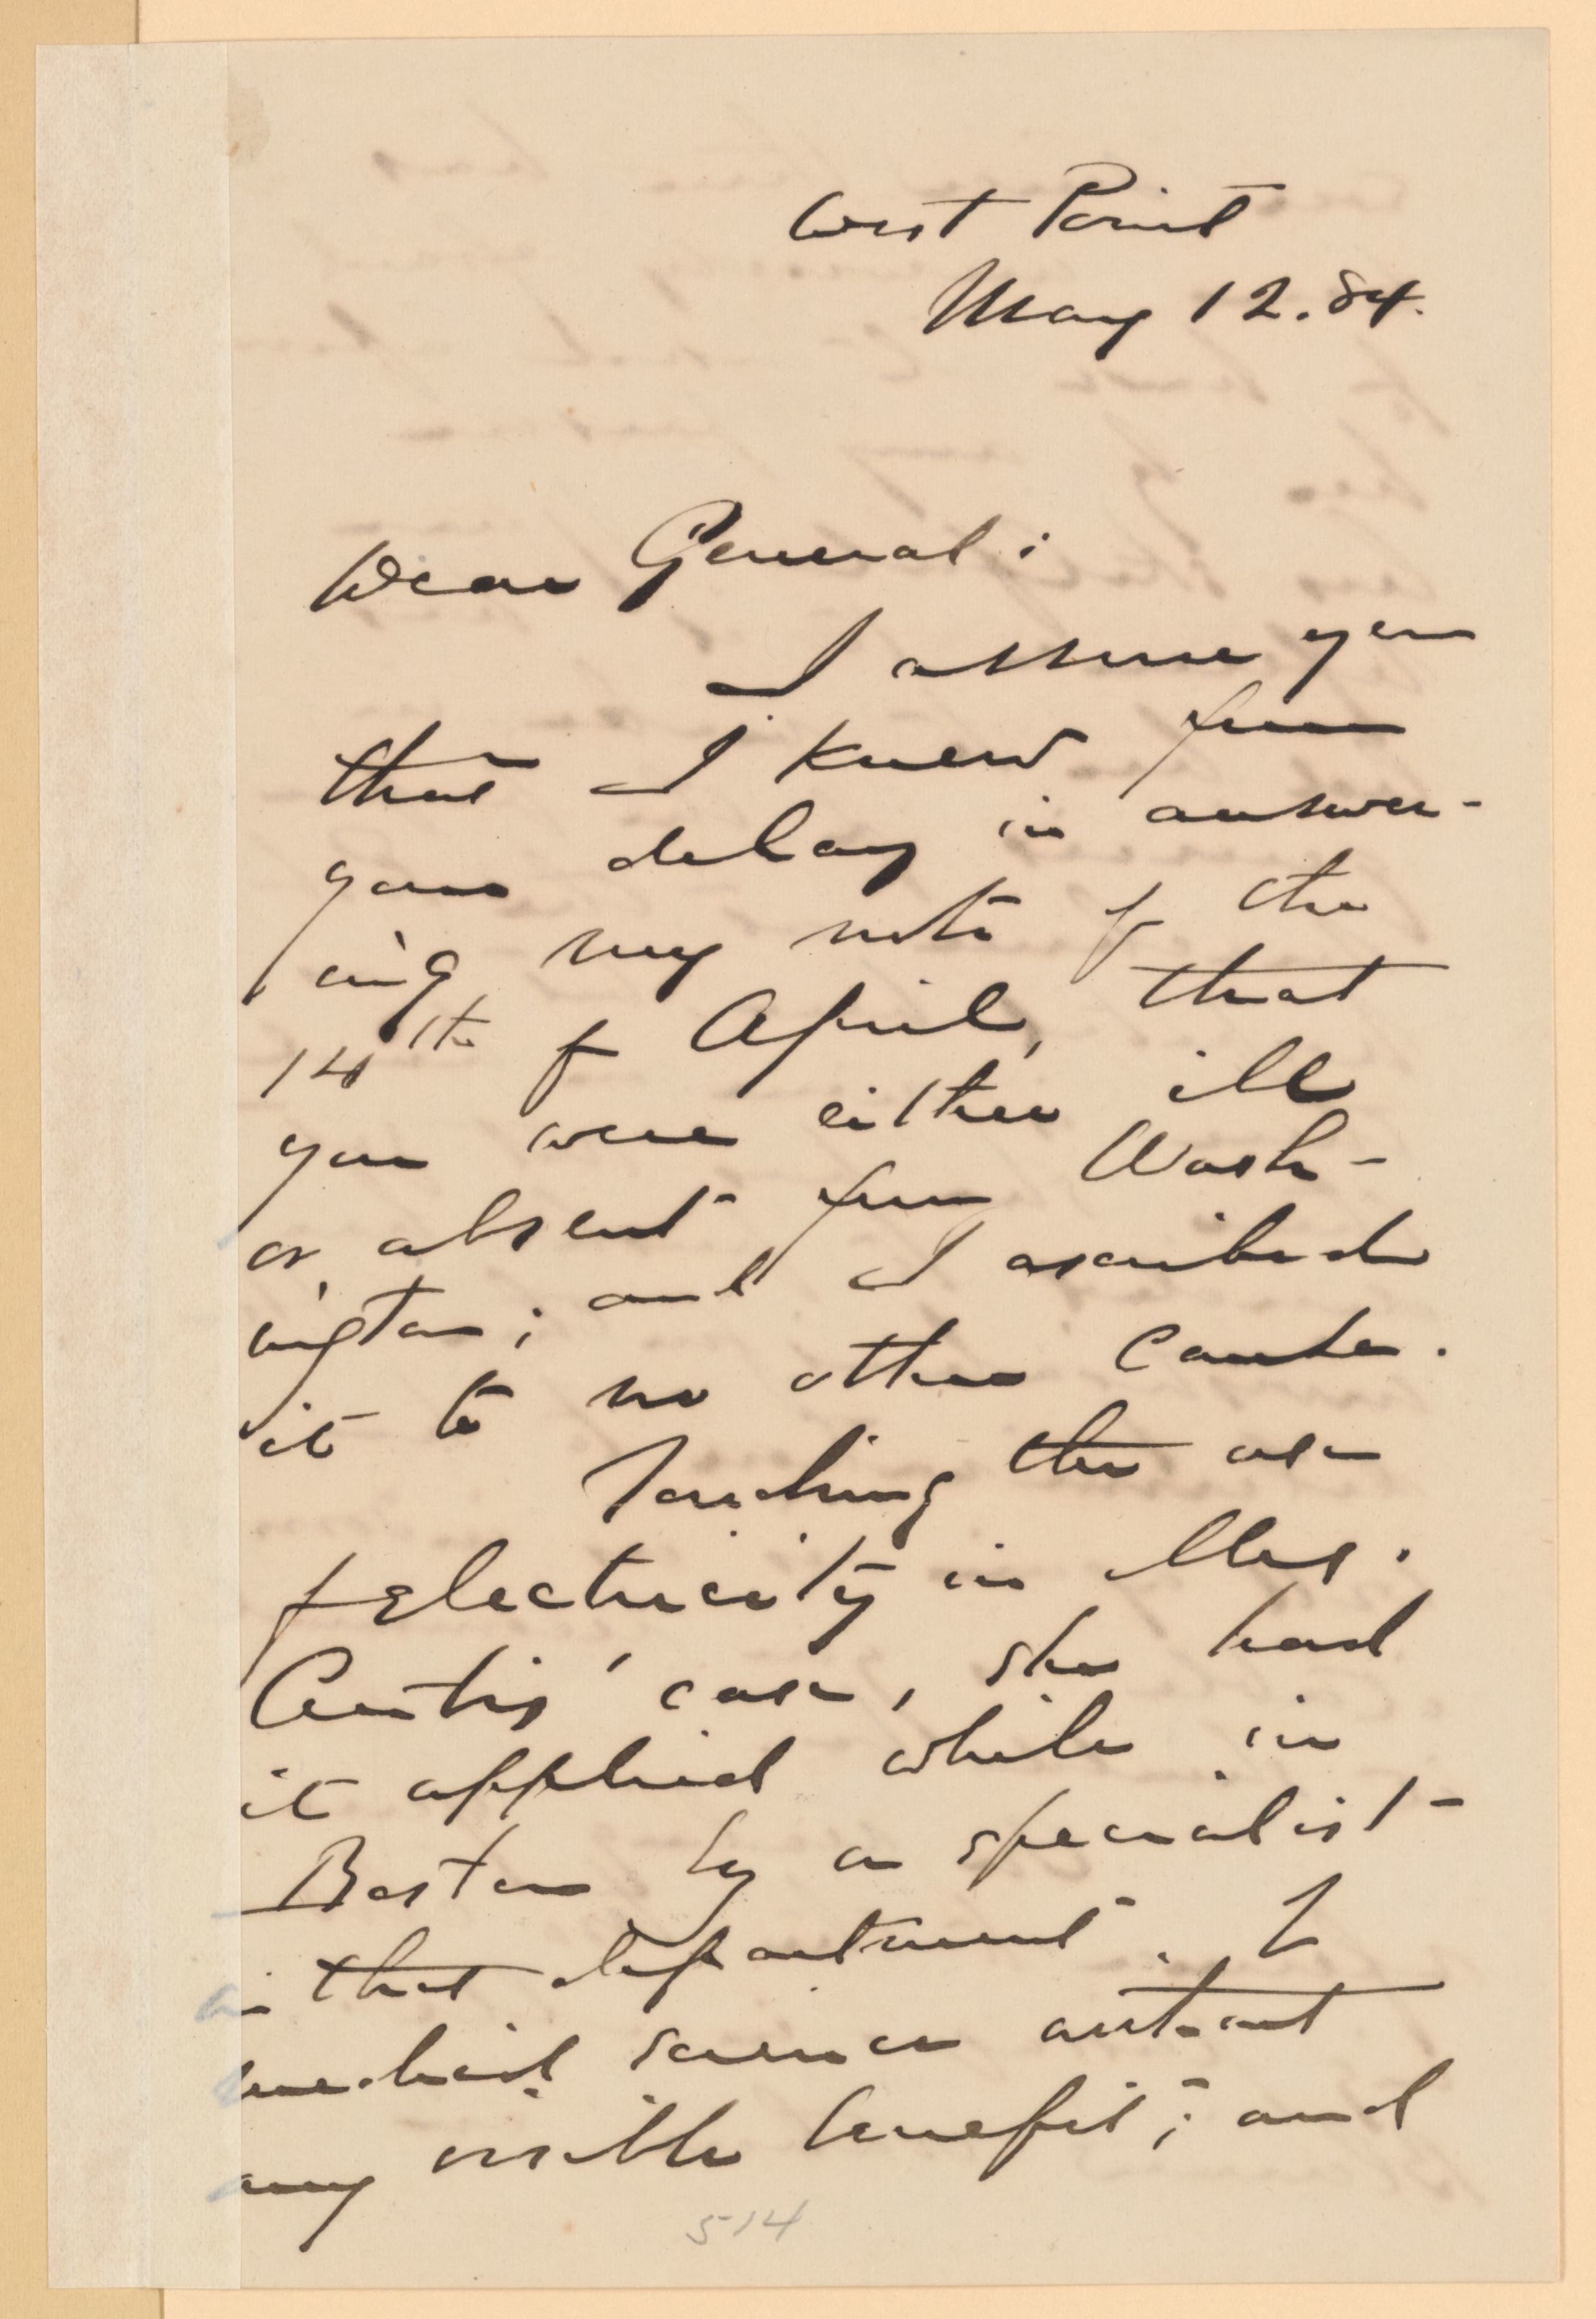 West Point
May 12. 84.
Dear General:
I assure you
that I knew from
your delay in answer-
ing my note of the
14th of April, that
you were either ill
or absent from Wash-
ington; and I ascribed
it to no other cause.
Touching the use
of electricity in Mrs.
Curtis' case, she had
it applied while in
Boston by a specialist
in that department of
medical science without
any visible benefit; and
514